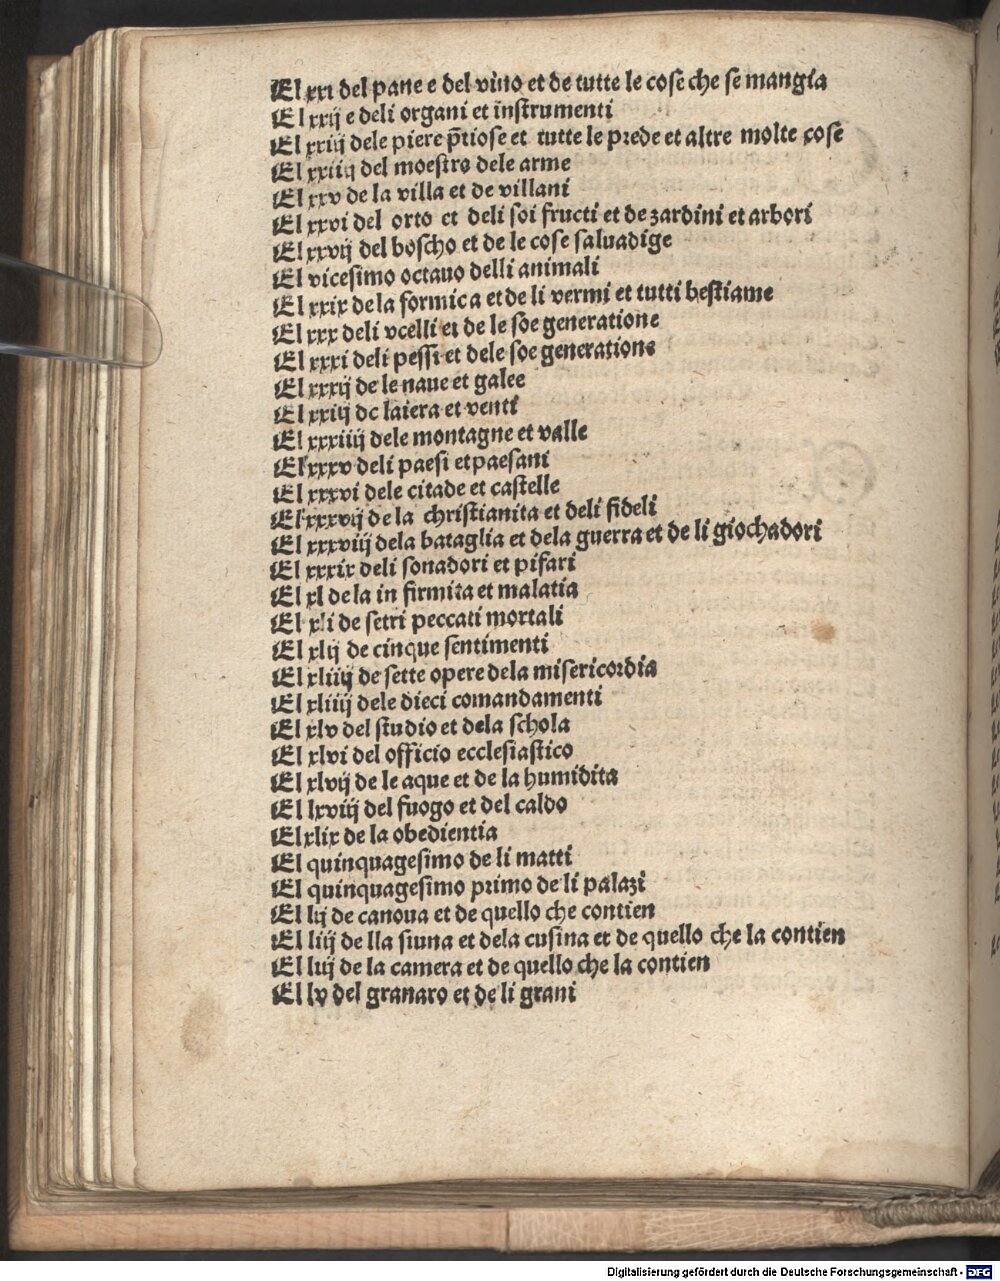 El xxi del pane e del vino et de tutte le cose che se mangia
El xxij e deli organi et instrumenti
El xxiij dele piere p̃tiose et tutte le prede et altre molte cose
El xxiiij del moestro dele arme
El xxv de la villa et de villani
El xxvi del orto et deli soi fructi et de zardini et arbori
El xxvij del boscho et de le cose saluadige
El vicesimo octauo delli animali
El xxix de la formica et de li vermi et tutti bestiame
El xxx deli vcelli et de le soe generatione
El xxxi deli pessi et dele soe generatione
El xxxij de le naue et galee
El xxiij de laiera et venti
El xxxiiij dele montagne et valle
El xxxv deli paesi et paesani
El xxxvi dele citade et castelle
El xxxvij de la christianita et deli fideli
El xxxviij dela bataglia et dela guerra et de li giochadori
El xxxix deli sonadori et pifari
El xl de la in firmita et malatia
El xli de setri peccati mortali
El xlij de cinque sentimenti
El xliij de sette opere dela misericordia
El xliiij dele dieci comandamenti
El xlv del studio et dela schola
El xlvi del officio ecclesiastico
El xlvij de le aque et de la humidita
El lxviij del fuogo et del caldo
El xlix de la obedientia
El quinquagesimo de li matti
El quinquagesimo primo de li palazi
El lij de canoua et de quello che contien
El liij de lla siuna et dela cusina et de quello che la contien
El luij de la camera et de quello che la contien
El lv del granaro et de li grani
Digitalisierung gefördert durch die Deutsche Forschungsgemeinschaft - DFG